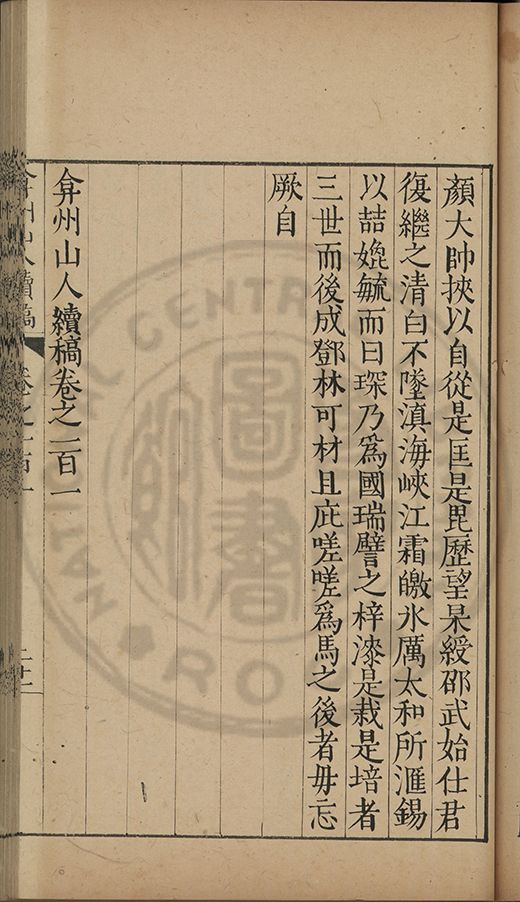 顏大帥挾以自從是匡是毘歷望杲綬邵武始仕君
復繼之清白不墜滇海峽江霜皦氷厲太和所滙錫
以喆媲毓而曰琛乃爲國瑞譬之梓漆是栽是培者
三世而後成鄧林可材且庇嗟嗟爲馬之後者毋忘
厥自
弇州山人續稿卷之一百一
弇州山人續稿
卷之一百一
二十二
圖書
NAL CENTR
RO